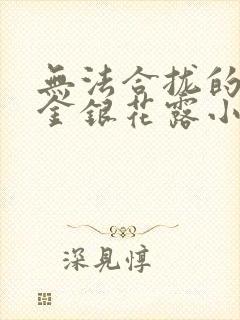 無法合拢的
金銀花露小
深見惇